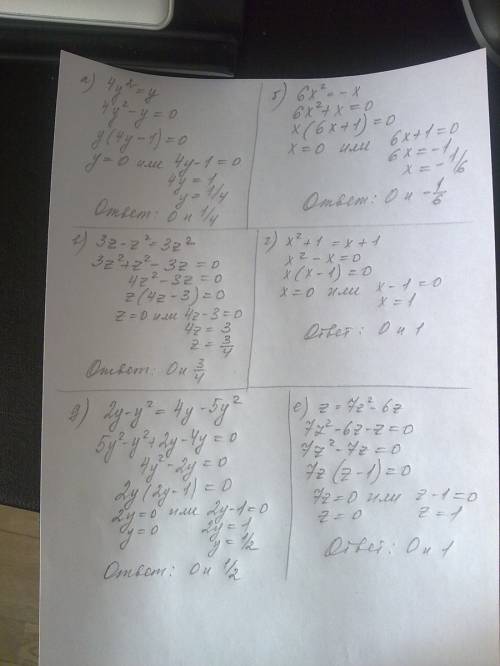 а) 4y² = y
4y² - y = 0
y(4y-1) = 0
y=0 или 4y-1=0
4y=1
y=1/4
Ответ: 0 и 1/4
б) 6x² = -x
6x² + x = 0
x(6x+1) = 0
x=0 или 6x+1=0
6x=-1
x=-1/6
Ответ: 0 и -1/6
3z-z²=3z²
3z²+z²-3z=0
4z²-3z=0
z(4z-3)=0
z=0 или 4z-3=0
4z=3
z=3/4
Ответ: 0 и 3/4
г) x²+1=x+1
x²-x=0
x(x-1)=0
x=0 или x-1=0
x=1
Ответ: 0 и 1
д) 2y-y²=4y-5y²
5y²-y²+2y-4y=0
4y²-2y=0
2y(2y-1)=0
2y=0 или 2y-1=0
y=0 2y=1
y=1/2
Ответ: 0 и 1/2
е) z=7z²-6z
7z²-6z-z=0
7z²-7z=0
7z(z-1)=0
7z=0 или z-1=0
z=0 z=1
Ответ: 0 и 1